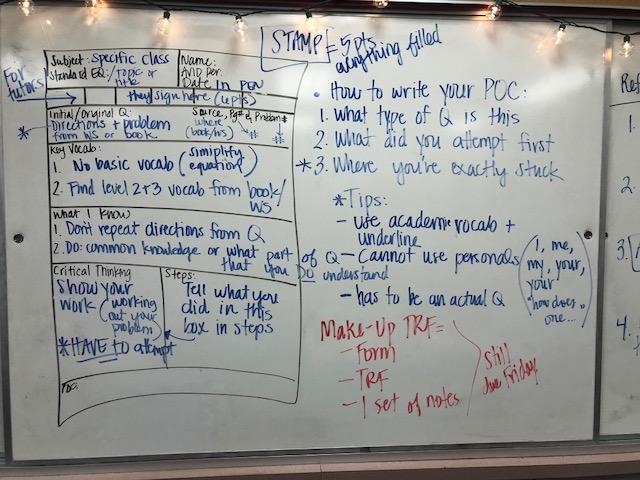 STAMP = 5 pts
anything filled
Subject: specific class
Standard EQ: / topic or
title
Name:
AVID Per:
Date in pen
For
tutors!
they sign here (12 pts)
Initial/Original Q:
* Directions + problem
from WS or book
Source, Pg# & Problem#
where
(book/ws)
#
#
Key Vocab:
1. No basic vocab (simiplify
equation)
2. Find level 2+3 vocab from book/
WS
What I Know
1. Don't repeat directions from Q
2. DO: common knowledge or what part of Q
that you DO understand
Critical Thinking
Show your
work (working
out your
problem)
*HAVE TO attempt
Steps:
Tell what you
did in this
box in steps
POC:
• How to write your POC:
1. What type of Q is this
2. What did you attempt first
*3. Where you're exactly stuck
*Tips:
- use academic vocab +
underline
- Cannot use personals
(I, me,
my, your,
how does
one...)
- has to be an actual Q
Make-Up TRF=
- Form
- TRF
- 1 set of notes
Still
due Friday
Ref
1.
2.
3.
4.